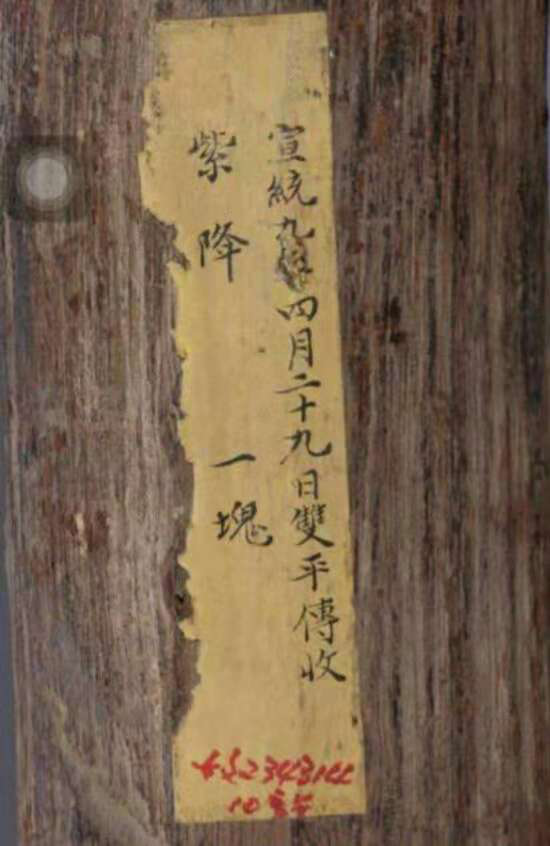 宣統九年四月二十九日雙平傳收
紫降 一塊